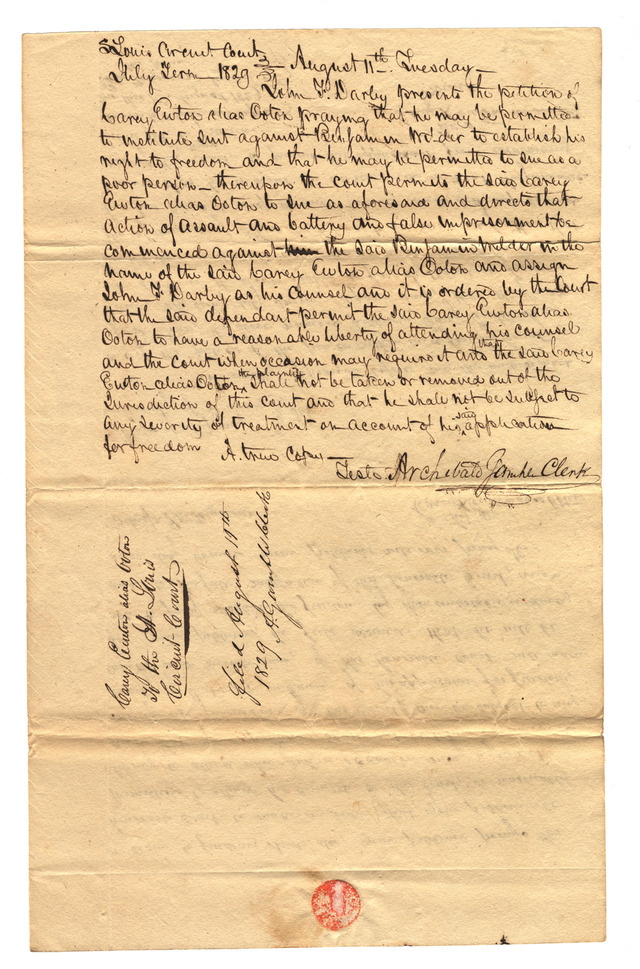 St Louis Circuit Court
July Term 1829 } August 11th Tuesday —
John F. Darby presents the petition of
Carey Ewton alias Ooton praying that he may be permitted
to institute suit against Benjamin Wilder to establish his
right to freedom and that he may be permitted to sue as a
poor person — thereupon the court permits the said Carey
Ewton alias Ooton to sue as aforesaid and directs that
action of assault and battery and false imprisonment be
commenced against him the said Benjamin Wilder in the
name of the said Carey Ewton alias Ooton and assign
John F Darby as his counsel and it is ordered by the Court
that the said defendant permit the said Carey Ewton alias
Ooton to have a reasonable liberty of attending his counsel
and the court when occasion may require it and that the said Carey
Ewton alias Ooton the plaintiff shall not be taken or removed out of the
Jurisdiction of this court and that he shall not be subject to
any severity of treatment on account of his said application
for freedom A true Copy —
Teste Archibald Gamble Clerk
Carey Ewton alias Ooton
to the St. Louis
Circuit Court
Filed August 19th
1829 A. Gamble Clerk